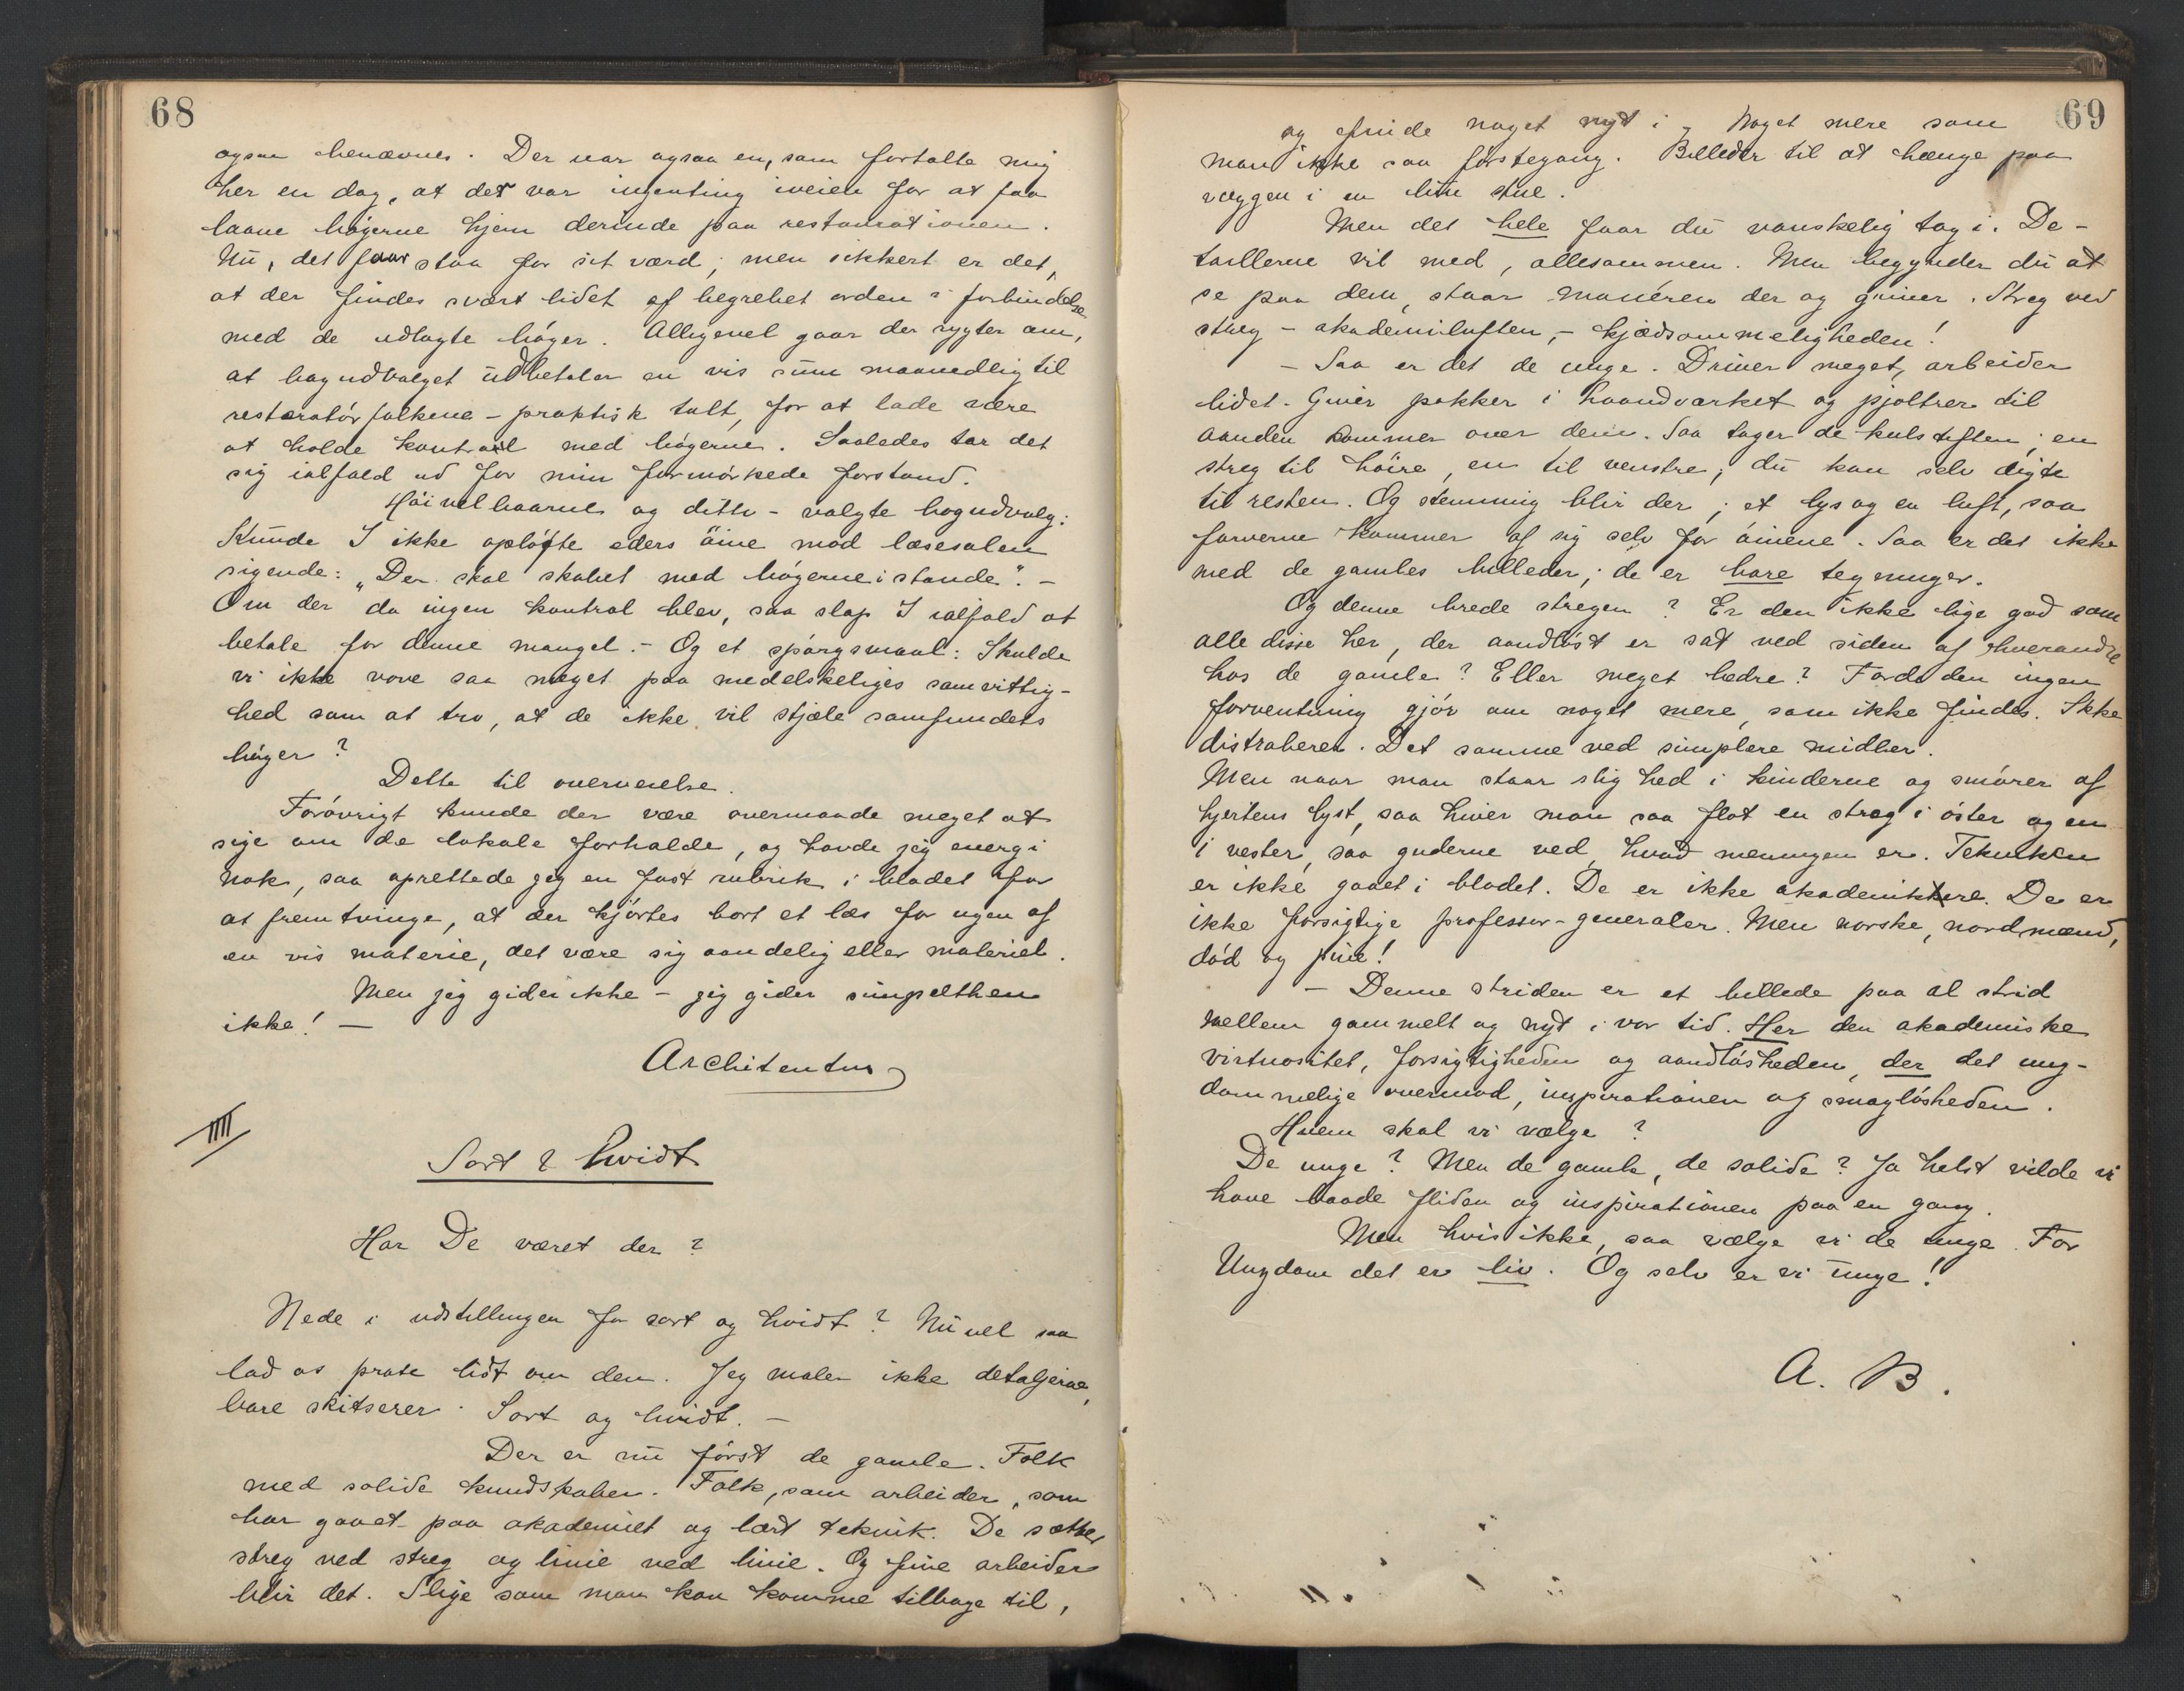 68
ogsaa henævnes. Der var ogsaa en, som fortalte mig
her en dag, at det var ingenting iveien for at faa
laane bøgerne hjem derinde paa restaurationen.
Nu, det faar staa for sit værd; men sikkert er det,
at der findes svært lidet af begrebet orden i forbindelse
med de udlagte bøger. Alligevel gaar der rygter om,
at bogudvalget udbetaler en vis sum maanedlig til
restaratørfolkene – praktisk talt, for at lade være
at holde kontroll med bøgerne. Saaledes tar det
sig ialfald ud for min formørkede forstand.
Høivelbaarne og ditto-valgte bogudvalg:
Kunde I ikke opløfte eders øine mod læsesalen
sigende: "Der skal skabet med bøgerne i stande". –
Om der da ingen kontrol blev, saa slap I ialfald at
betale for denne mangel. – Og et spørgsmaal: Skulde
vi ikke vove saa meget paa medelskeliges samvittig-
hed som at tro, at de ikke vil stjæle samfundets
bøger?
Dette til overveielse.
Forøvrigt kunde der være overmaade meget at
sige om de lokale forholde, og havde jeg energi
nok, saa oprettede jeg en fast rubrik i bladet for
at fremtvinge, at der kjørtes bort et læs for ugen af
en vis materie, det være sig aandelig eller materiel.
Men jeg gider ikke – jeg gider simpelthen
ikke! –
Architentus
IIII
Sort & hvidt
Har De været der?
Nede i udstillingen for sort og hvidt? Nuvel saa
lad os prate lidt om den. Jeg maler ikke detaljerne,
bare skitserer. Sort og hvidt. –
Der er nu først de gamle. Folk
med solide kundskaber. Folk, som arbeider, som
har gaaet paa akademiet og lært teknik. De sætter
streg ved streg og linie ved linie. Og fine arbeider
blir det. Slige som man kan komme tilbage til,
69
og finde noget nyt i, noget mere som
man ikke saa førstegang. Billeder til at hænge paa
væggen i en liten stue.
Men det hele faar du vanskelig tag i. De-
taillerne vil med, allesammen. Men begynder du at
se paa dem, staar manéren der og griner. Streg ved
streg – akademiluften, – kjædsommeligheden!
– Saa er det de unge. Driver meget, arbeider
lidet. Giver pokker i haandværket og pjoltrer til
aanden kommer over dem. Saa tager de kulstiften; en
streg til høire, en til venstre; du kan selv digte
til resten. Og stemning blir der; et lys og en luft, saa
farverne kommer af sig selv for øinene. Saa er det ikke
med de gamles billeder; de er bare tegninger.
Og denne brede stregen? Er den ikke lige god som
alle disse her, der aandløst er sat ved siden af hverandre
hos de gamle? Eller meget bedre? Fordi den ingen
forventning gjør om noget mere, som ikke findes. Ikke
distraherer. Det samme ved simplere midler.
Men naar man staar slig hed i kinderne og smører af
hjertens lyst, saa hiver man saa flot en streg i øster og en
i vester, saa guderne ved, hvad meningen er. Teknikken
er ikke gaaet i blodet. De er ikke akademikere. De er
ikke forsigtige professor-generaler. Men norske, nordmænd,
død og pine!
– Denne striden er et billede paa al strid
mellem gammelt og nyt i vor tid. Her den akademiske
virtuositet, forsigtigheden og aandløsheden, der det ung-
dommelige overmod, inspirationen og smagløsheden.
Hvem skal vi vælge?
De unge? Men de gamle, de solide? Ja helst vilde vi
have baade fliden og inspirationen paa en gang.
Men hvis ikke, saa vælge vi de unge. For
Ungdom det er liv. Og selv er vi unge!
A. B.